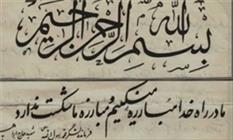 بسم الله الرحمن الرحیم
ما در راه خدا مبارزه میکنیم و مبارزه ما شکست ندارد